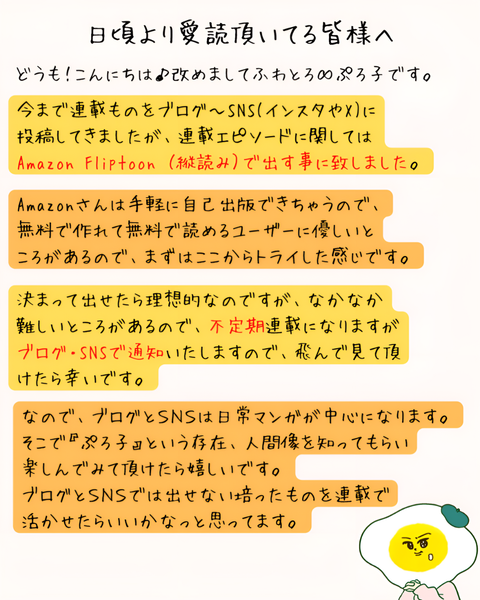 日頃より愛読頂いてる皆様へ
どうも!こんにちは♪改めましてふわとろ∞ぷろ子です。
今まで連載ものをブログ〜SNS(インスタやX)に
投稿してきましたが、連載エピソードに関しては
Amazon Fliptoon (縦読み)で出す事に致しました。
Amazonさんは手軽に自己出版できちゃうので、
無料で作れて無料で読めるユーザーに優しいと
ころがあるので、まずはここからトライした感じです。
決まって出せたら理想的なのですが、なかなか
難しいところがあるので、不定期連載になりますが
ブログ・SNSで通知いたしますので、飛んで見て頂
けたら幸いです。
なので、ブログとSNSは日常マンガが中心になります。
そこで『ぷろ子』という存在、人間像を知ってもらい
楽しんでみて頂けたら嬉しいです。
ブログとSNSでは出せない培ったものを連載で
活かせたらいいかなっと思ってます。